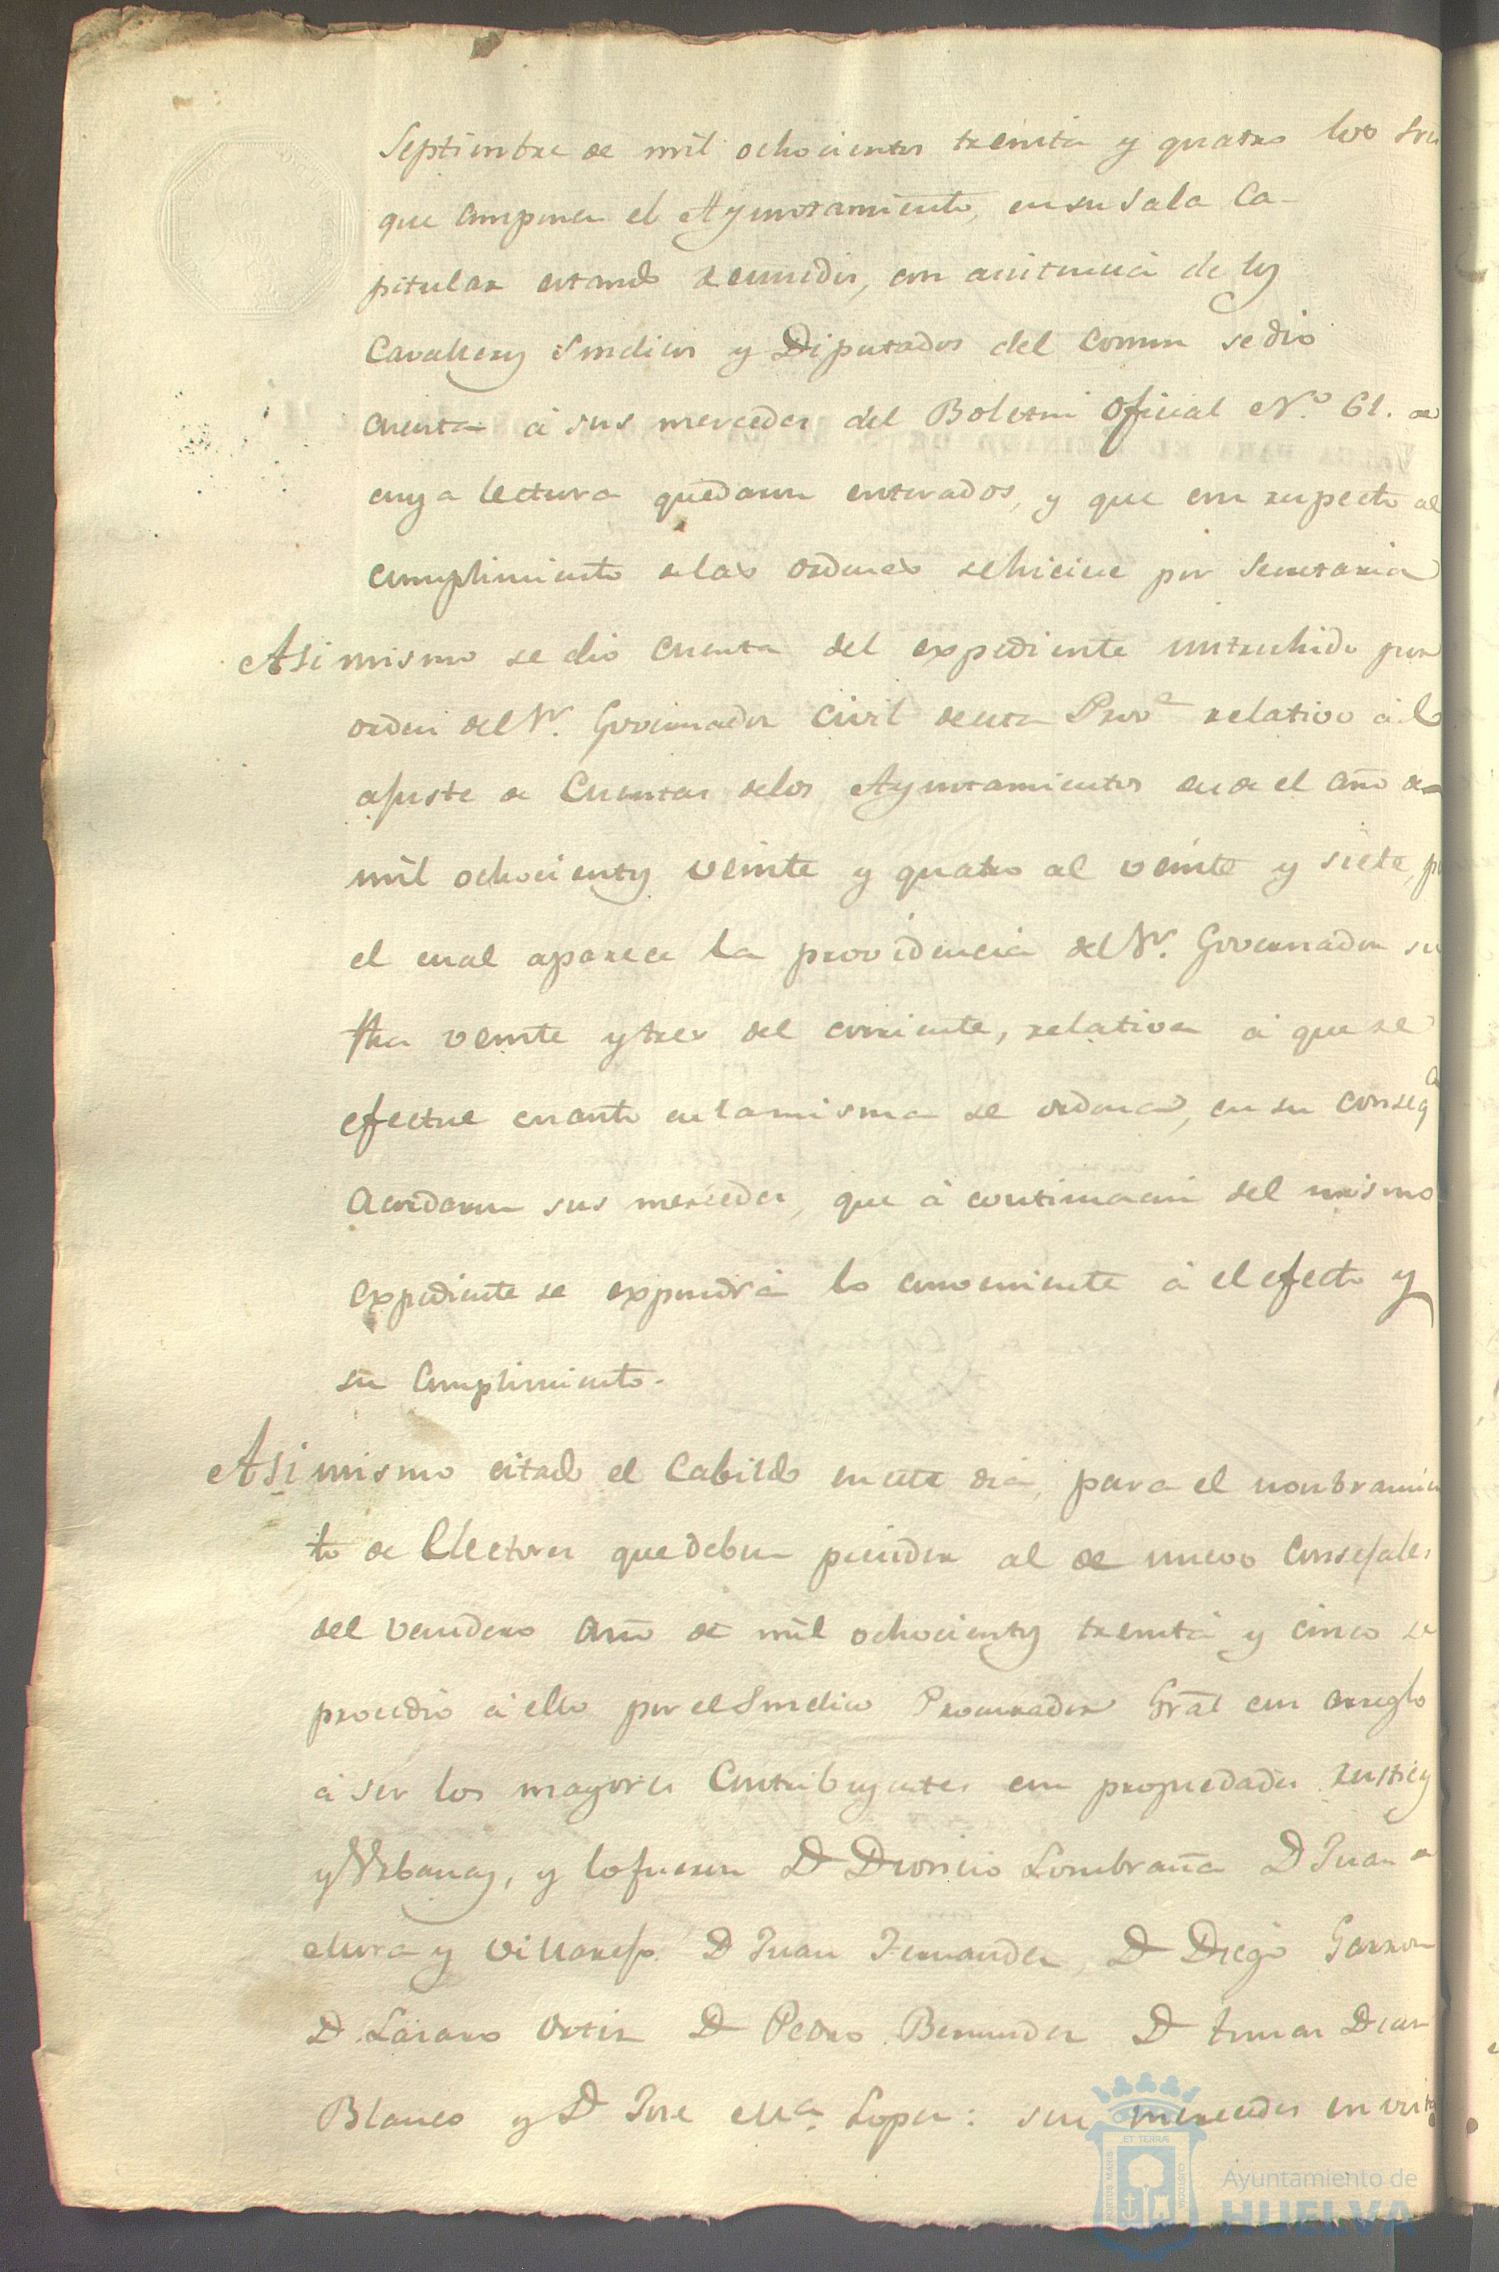 Septiembre de mil ochocientos treinta y quatro los Sres
que componen el Ayuntamiento, en su Sala Ca-
pitular estando reunidos, con asistencia de los
Cavalleros Sindicos y Diputados del Comun se dio
cuenta á sus mercedes del Boletin Oficial N.º 61. de
cuya lectura quedaron enterados, y que con respecto al
cumplimiento de las ordenes se hiciese por Secretaria
Asi mismo se dio cuenta del expediente instruhido por
orden del Sr. Governador Civil de esta Prov.ª relativo á el
ajuste de Cuentas de los Ayuntamientos desde el año de
mil ochocientos veinte y quatro al veinte y siete, por
el cual aparece la providencia del Sr. Governador su
fha veinte y tres del corriente, relativa á que se
efectue cuanto en la misma se ordena, en su conseqª
acordaron sus mercedes, que á continuacion del mismo
expediente se expondrá lo conveniente á el efecto y
su cumplimiento.
Asi mismo citado el Cabildo en este dia, para el nombramien
to de Electores que deben preceder al de nuevo Consejales
del venidero año de mil ochocientos treinta y cinco se
procedió á ello por el Sindico Procurador Gral con arreglo
á ser los mayores Contribuyentes con propiedades rusticas
y Urbanas, y lo fueron D Dionicio Lombraña D Juan de
Mora y Villarejo D Juan Fernandez, D Diego Garzon
D Lazaro Ortiz D Pedro Bermudez D Tomas Dean
Blanco y D Jose Mª. Lopez: sus mercedes en vista
PORTUS MARIS
ET TERRÆ
CUSTODIA
Ayuntamiento de
HUELVA